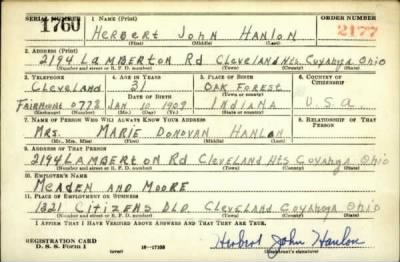 SERIAL NUMBER
1760
1. Name (Print)
ORDER NUMBER
2177
Herbert John Hanlon
(First) (Middle) (Last)
2. Address (Print)
2194 Lamberton Rd Cleveland Hts. Cuyahoga Ohio
(Number and street or R. F. D. number) (Town) (County) (State)
3. Telephone
4. Age in Years
5. Place of Birth
6. Country of Citizenship
Cleveland
31
Oak Forest
Date of Birth
(Town or county)
Fairmont 0778
Jan 10 1909
Indiana
U.S.A.
(Exchange) (Number)
(Mo.) (Day) (Yr.)
(State or country)
7. Name of Person Who Will Always Know Your Address
8. Relationship of That Person
Mrs. Marie Donovan Hanlon
(Mr., Mrs., Miss) (First) (Middle) (Last)
9. Address of That Person
2194 Lamberton Rd Cleveland Hts Cuyahoga Ohio
(Number and street or R. F. D. number) (Town) (County) (State)
10. Employer's Name
Meaden and Moore
11. Place of Employment or Business
1321 Citizens Bld. Cleveland Cuyahoga Ohio
(Number and street or R. F. D. number) (Town) (County) (State)
I Affirm That I Have Verified Above Answers and That They Are True.
REGISTRATION CARD
D. S. S. Form 1
(over)
16—17105
Herbert John Hanlon
(Registrant's signature)